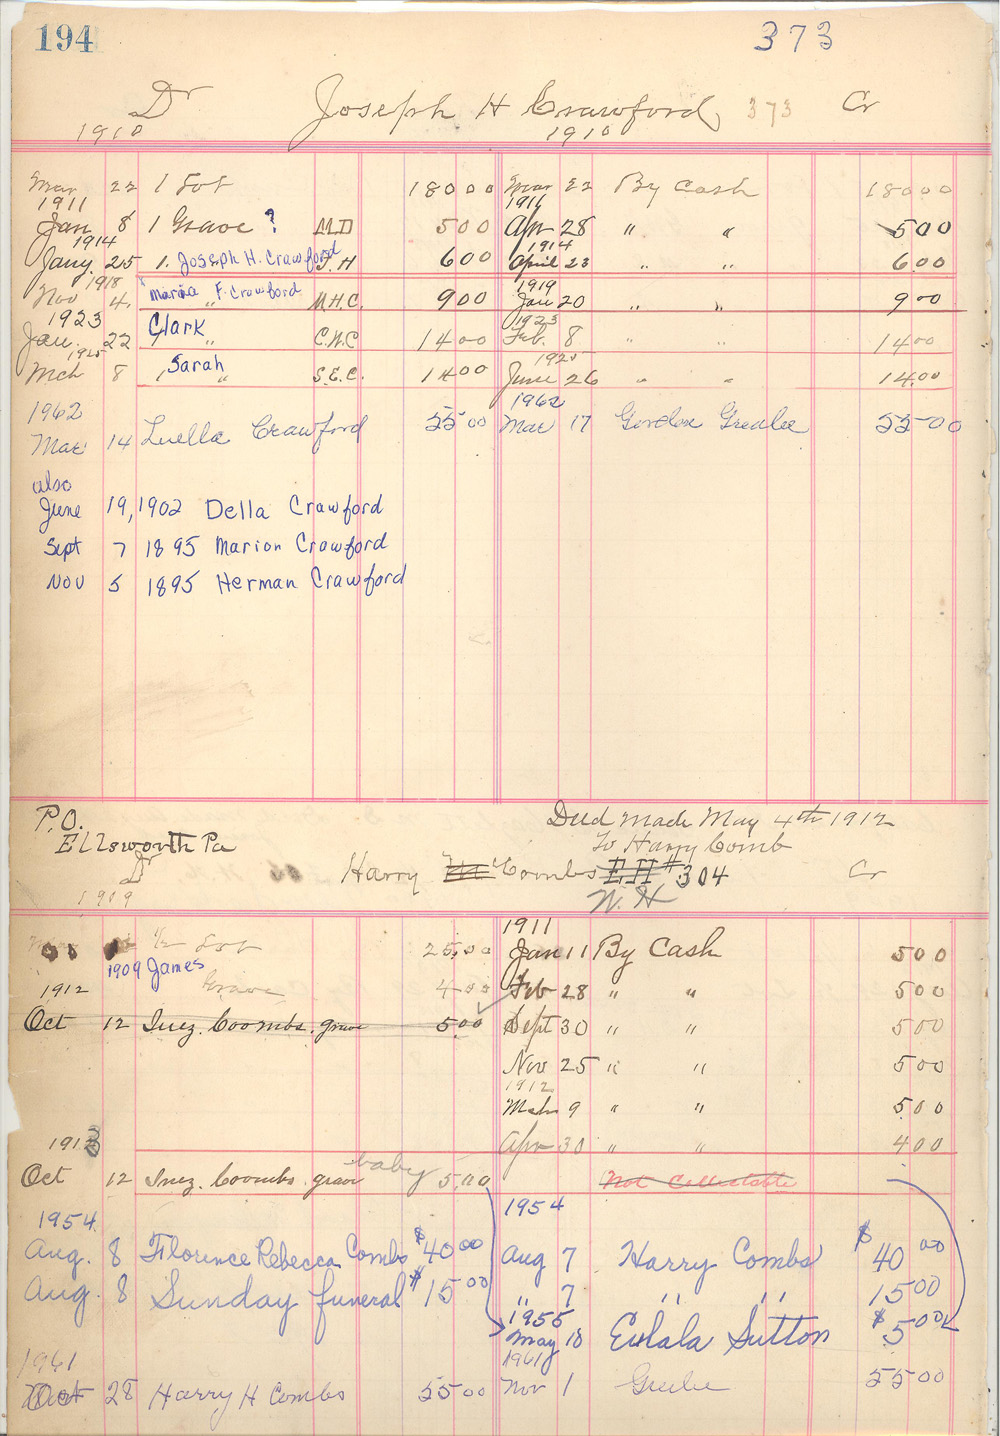 194
373
Dr Joseph H Crawford 373 Cr
1910 1910
Mar 22 1 Lot 180 00 Mar 22 By Cash 180 00
1911 1911
Jan 8 1 Grave ? M D 5 00 Apr 28 " " 5 00
1914 1914
Jany. 25 1. Joseph H. Crawford J. H 6 00 April 23 " " 6 00
1918 1919
Nov 4. Maria F. Crawford " M.H.C. 9 00 Jan 20 " " 9 00
1923 1923
Jan. 22 Clark " C.N.C 14 00 Feb. 8 " " 14 00
1925 1925
Mch 8 1 Sarah " S.E.C. 14 00 June 26 " " 14.00
1962 1962
Mar 14 Luella Crawford 55 00 Mar 17 Gordon Grealee 55 00
also
June 19, 1902 Della Crawford
Sept 7 1895 Marion Crawford
Nov 5 1895 Herman Crawford
P.O.
Ellsworth Pa
Deed made May 4th 1912
To Harry Comb
Dr Harry Mc Combs E H #304 Cr
1909 N. H
1911
1/2 Lot 25.00 Jan 11 By Cash 5 00
1909 James
1912 Grave 4 00 Feb 28 " " 5 00
Oct 12 Inez. Coombs. grave 5 00 Sept 30 " " 5 00
Nov 25 " " 5 00
1912
Mch 9 " " 5 00
1913 Apr 30 " " 4 00
Oct 12 Inez. Coombs. grave baby 5.00 Not Collectable
1954 1954
Aug. 8 Florence Rebecca Combs $40 00 Aug 7 Harry Combs $40 00
Aug. 8 Sunday funeral $15 00 " 7 " " 15 00
1955
May 18 Eulala Sutton $5.00
1961 1961
Oct 28 Harry H Combs 55 00 Nov 1 55 00